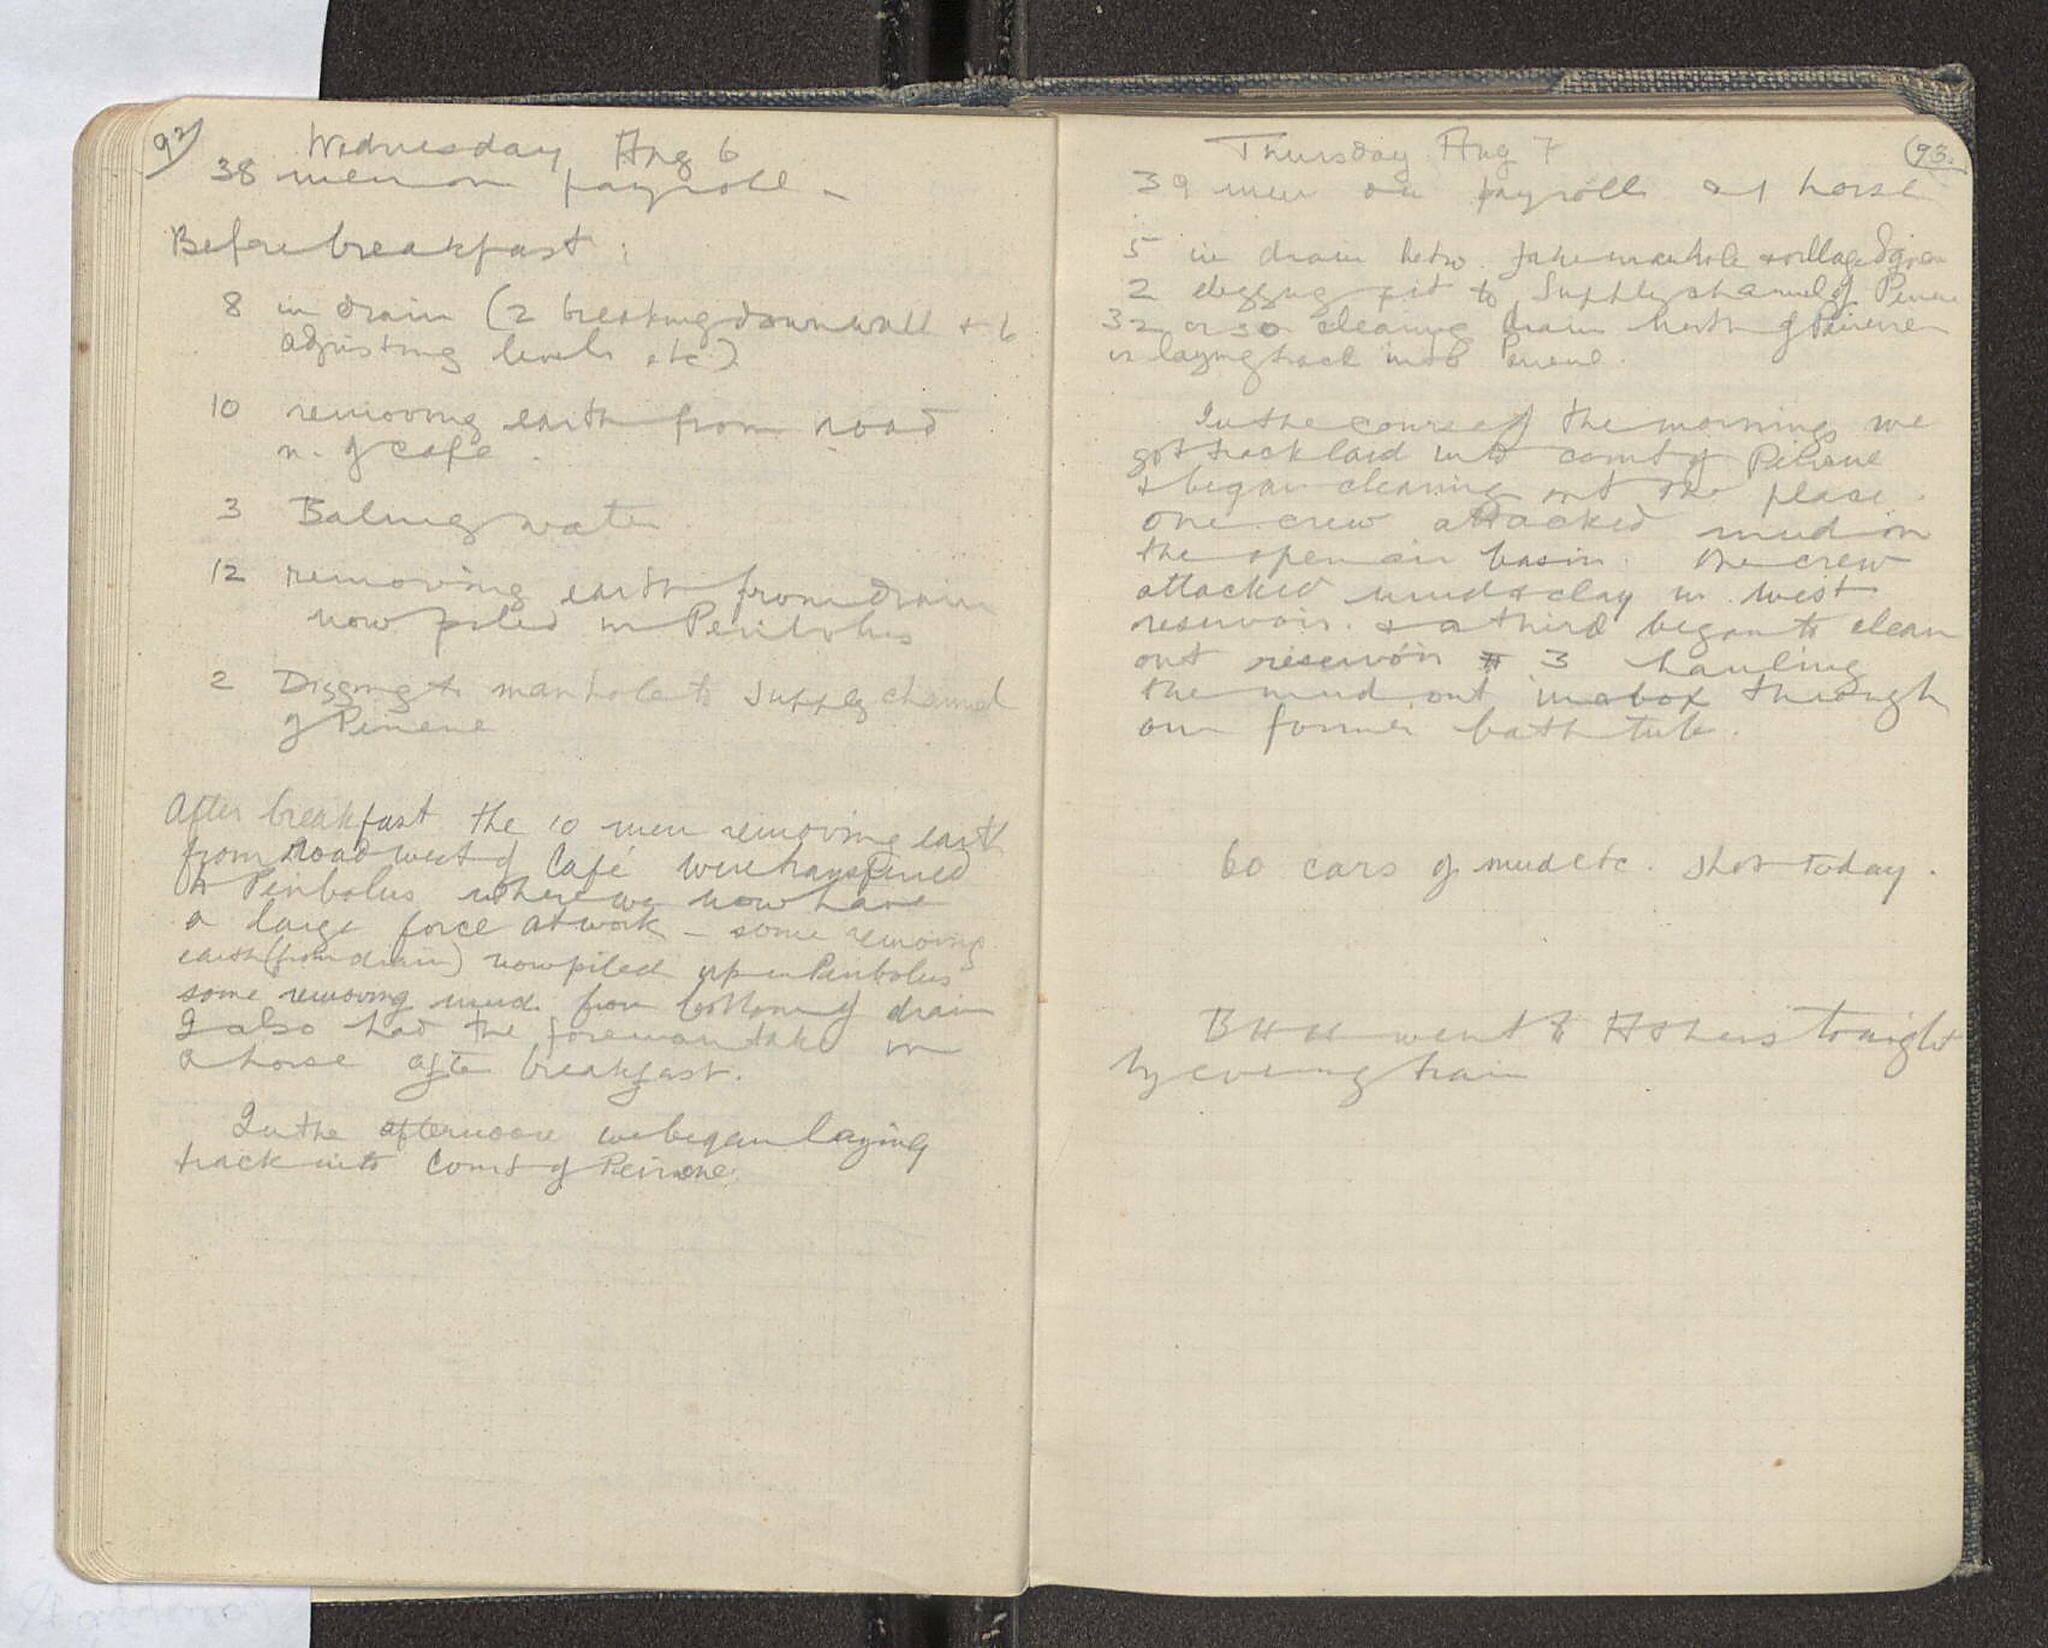 92
Wednesday Aug 6
38 men on payroll -
Before breakfast :
8 in drain (2 breaking down wall + 6
adjusting levels etc)
10 removing earth from road
n. of Cafe .
3 Baling water
12 removing earth from drain
now piled in Peribolus
2 Digging to manhole to supply channel
of Pirene
After breakfast the 10 men removing earth
from road west of Café were transferred
to Peribolus where we now have
a large force at work - some removing
earth (from drain) now piled up in Peribolus
some removing mud from bottom of drain
I also had the foreman take on
a horse after breakfast.
In the afternoon we began laying
track into Court of Peirene.
93.
Thursday Aug 7
39 men on payroll & 1 horse
5 in drain betw. fake manhole & village
2 digging pit to supply channel of Pirene
32 or so clearing drain north of Peirene
or laying track into Pirene.
In the course of the morning we
got track laid into court of Peirene
& began cleaning out the place.
One crew attacked mud in
the open air basin. One crew
attacked mud & clay in west
reservoir. & a third began to clean
out reservoir # 3 hauling
the mud out in a box through
our former bath tub.
60 cars of mud etc. shot today.
BHH went to Athens tonight
by evening train